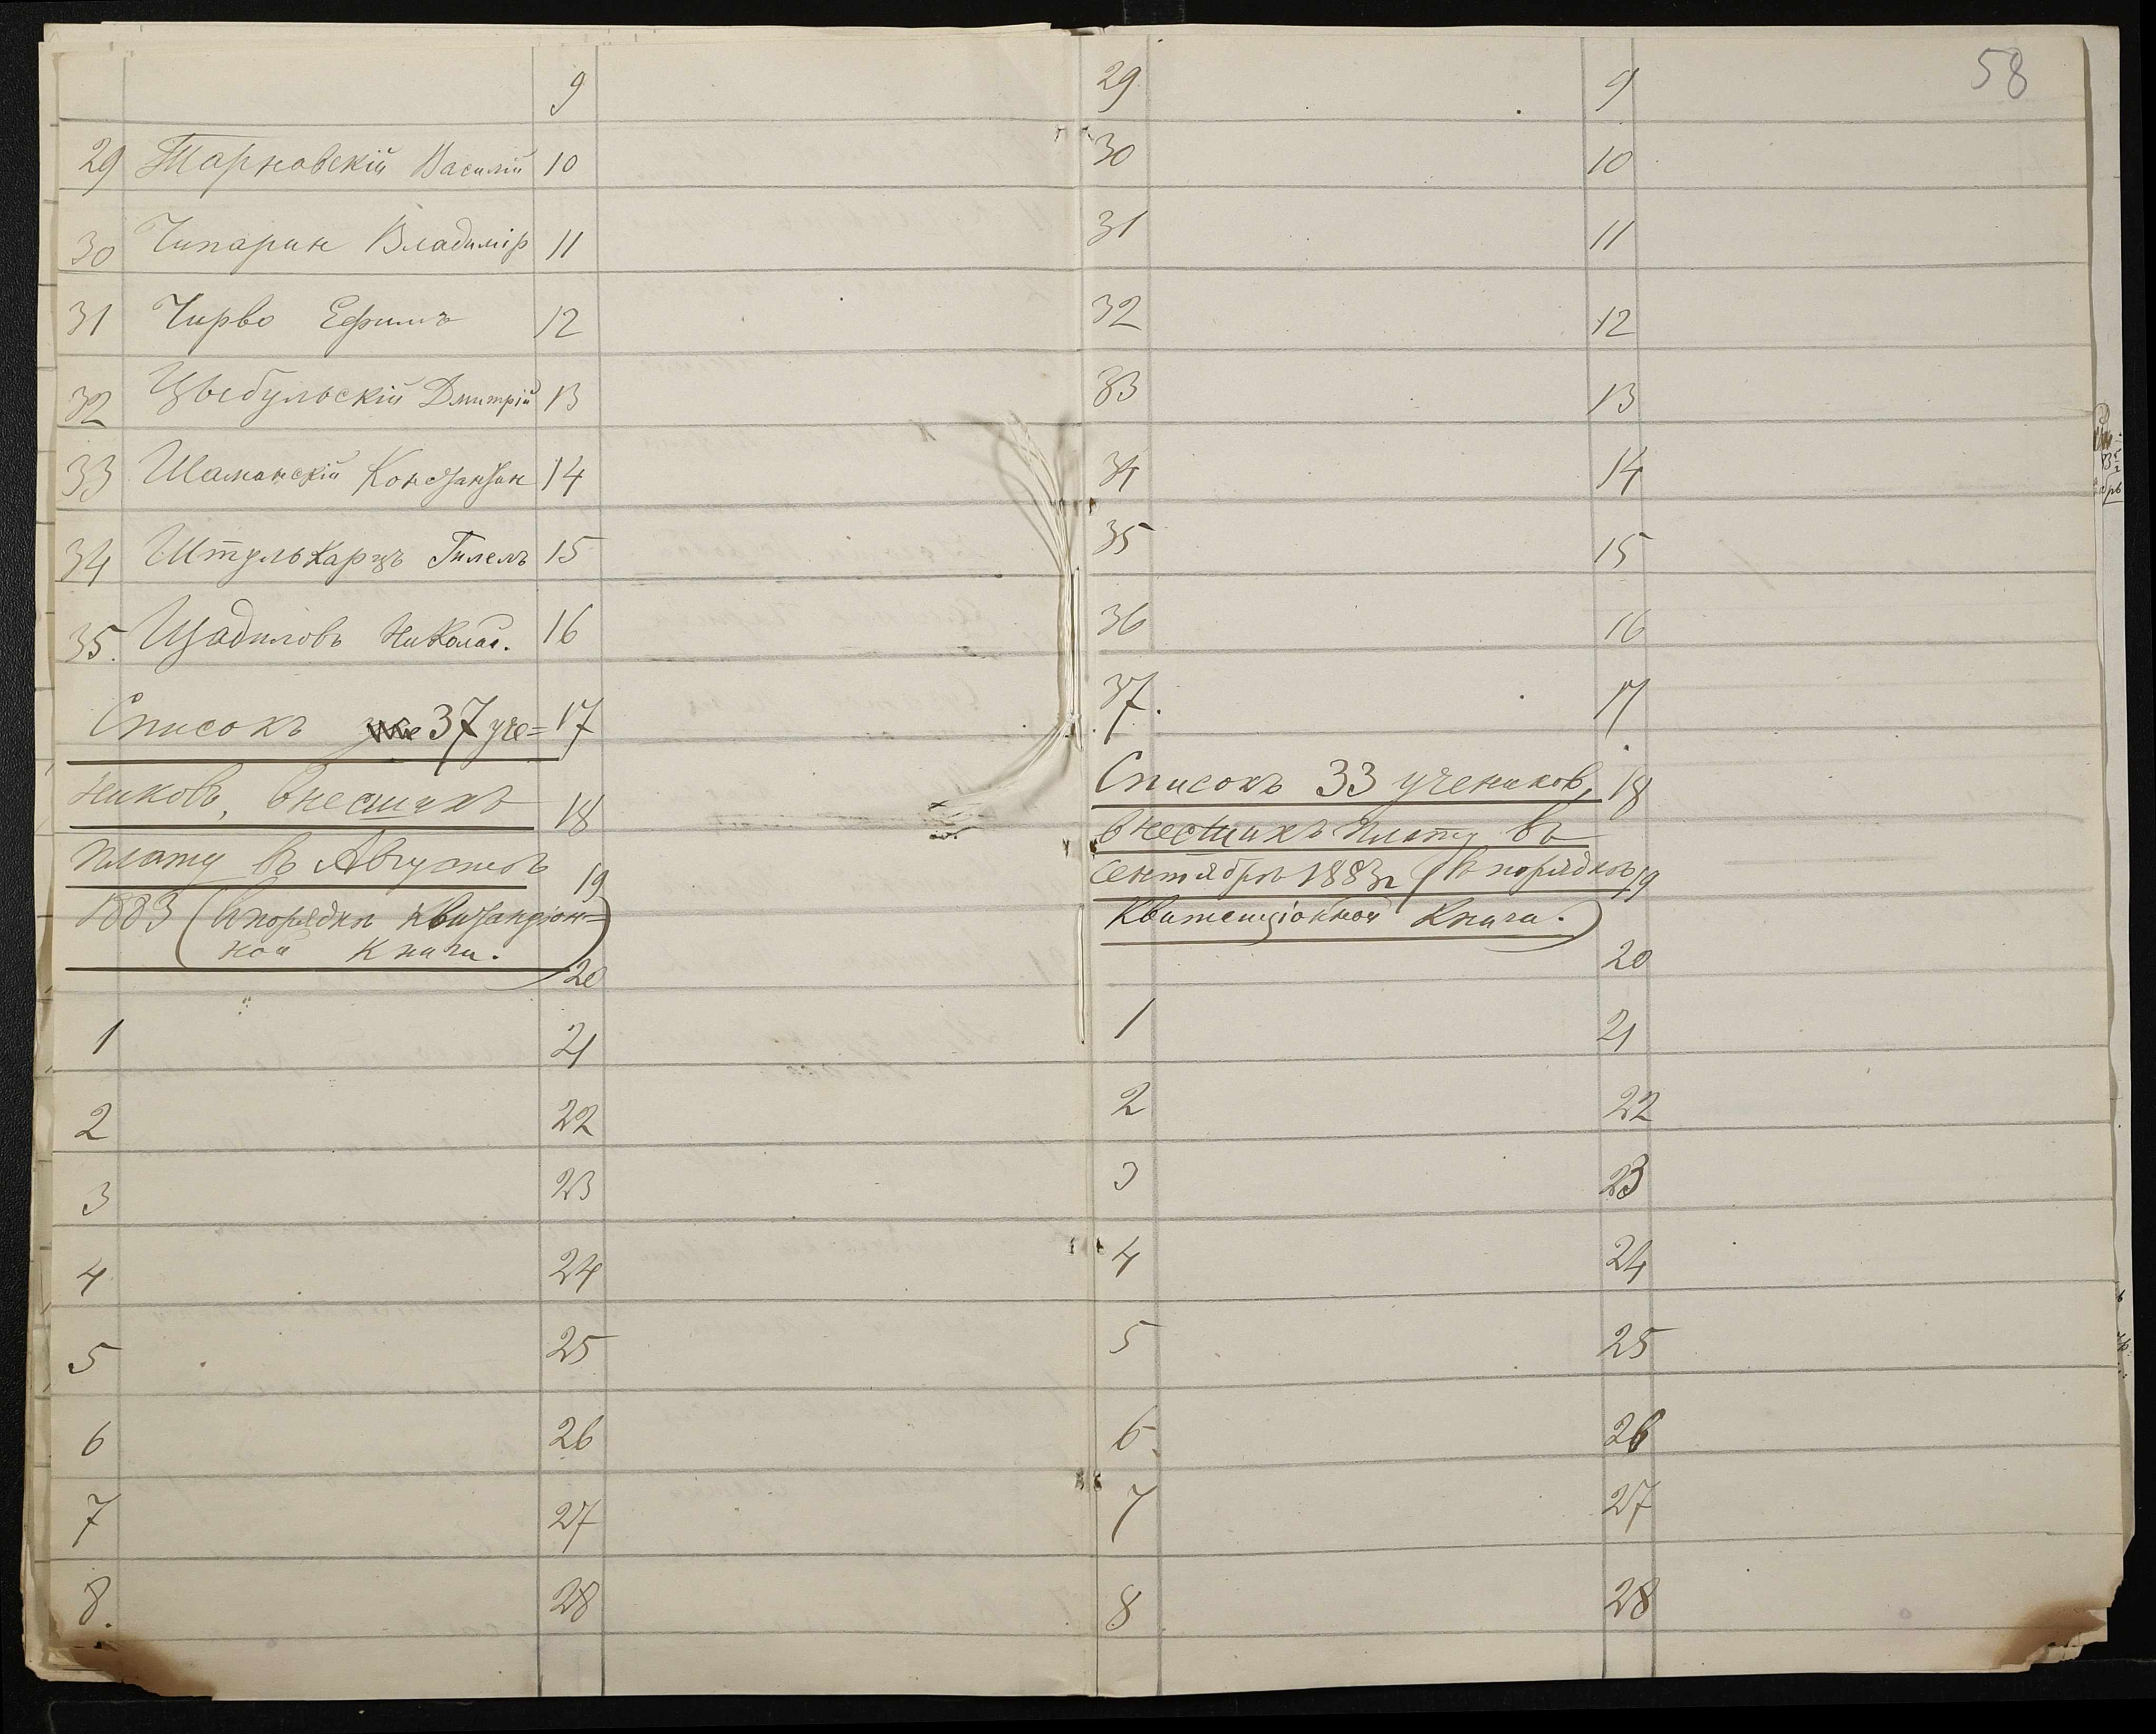 58
9
29 Тарновскій Василій 10
30 Чипарин Владиміръ 11
31 Чирво Ефимъ 12
32 Цыбульскій Дмитрій 13
33 Шаманскій Константин 14
34 Штулькарцъ Гилелъ 15
35. Щадиловъ Николай. 16
Списокъ 37 уче= 17
никовъ, внесшихъ 18
плату въ Августѣ 19
1883 (въ порядкѣ квитанціон=
ной книги.) 20
1 21
2 22
3 23
4 24
5 25
6 26
7 27
8. 28
29 9
30 10
31 11
32 12
33 13
34 14
35 15
36 16
37. 17
Списокъ 33 учениковъ, 18
внесшихъ плату въ
сентябрѣ 1883г (въ порядкѣ 19
Квитанціонной книги.)
20
1 21
2 22
3 23
4 24
5 25
6. 26
7 27
8 28